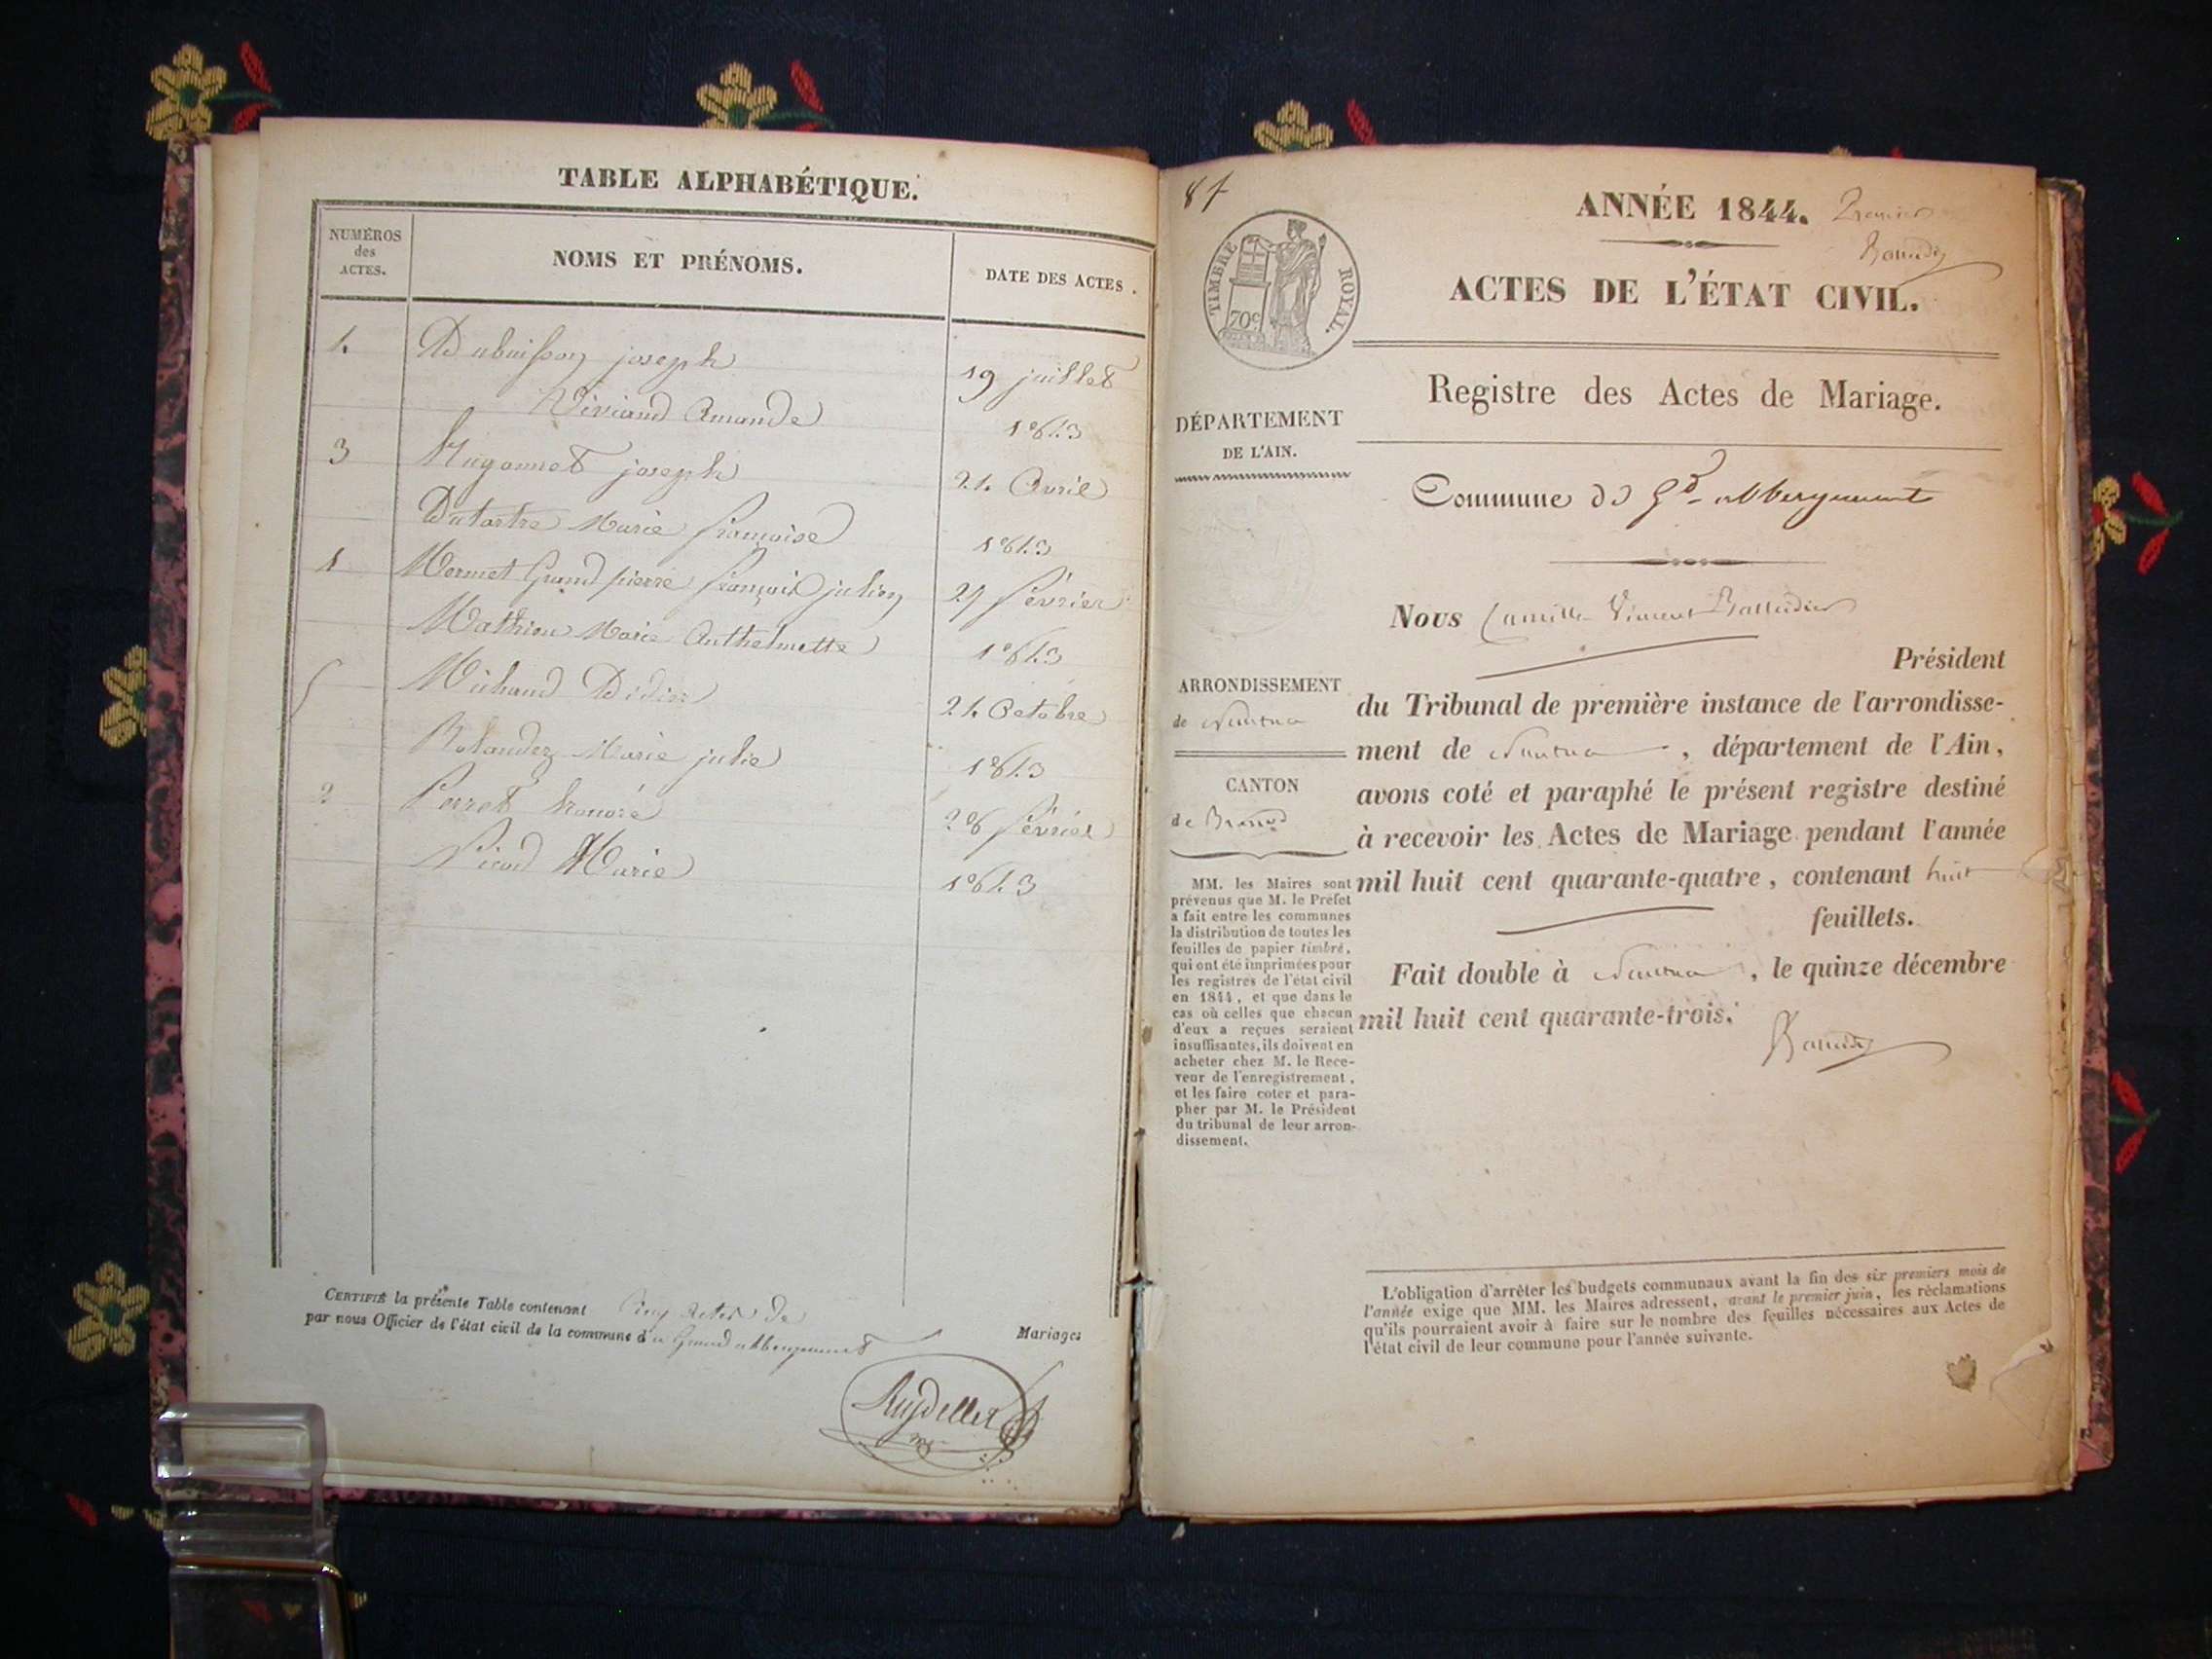 TABLE ALPHABÉTIQUE.
NUMÉROS
des
ACTES.
NOMS ET PRÉNOMS.
DATE DES ACTES.
4. Dubuisson joseph 19 juillet
Viviand Amande 1843
3 Hugonnet joseph 24 Avril
Dutartre Marie françoise 1843
1 Mermet Grand pierre françois julien 27 février
Mathieu Marie Anthelmette 1843
5 Michaud Didier 24 Octobre
Rolandez Marie julie 1843
2 Perret honoré 28 février
Picod Marie 1843
CERTIFIÉ la présente Table contenant Cinq Actes de Mariages
par nous Officier de l'état civil de la commune du Grand abbergement
87
TIMBRE ROYAL.
70c
ANNÉE 1844. Premier
ACTES DE L'ÉTAT CIVIL.
Registre des Actes de Mariage.
DÉPARTEMENT
DE L'AIN.
Commune de Gd abbergement
Nous Camille Vincent
Président
ARRONDISSEMENT
de Nantua
CANTON
de Brenod
du Tribunal de première instance de l'arrondisse-
ment de Nantua, département de l'Ain,
avons coté et paraphé le présent registre destiné
à recevoir les Actes de Mariage pendant l'année
mil huit cent quarante-quatre, contenant huit
feuillets.
Fait double à Nantua, le quinze décembre
mil huit cent quarante-trois.
MM. les Maires sont
prévenus que M. le Préfet
a fait entre les communes
la distribution de toutes les
feuilles de papier timbré,
qui ont été imprimées pour
les registres de l'état civil
en 1844, et que dans le
cas où celles que chacun
d'eux a reçues seraient
insuffisantes, ils doivent en
acheter chez M. le Rece-
veur de l'enregistrement,
et les faire coter et para-
pher par M. le Président
du tribunal de leur arron-
dissement.
L'obligation d'arrêter les budgets communaux avant la fin des six premiers mois de
l'année exige que MM. les Maires adressent, avant le premier juin, les réclamations
qu'ils pourraient avoir à faire sur le nombre des feuilles nécessaires aux Actes de
l'état civil de leur commune pour l'année suivante.